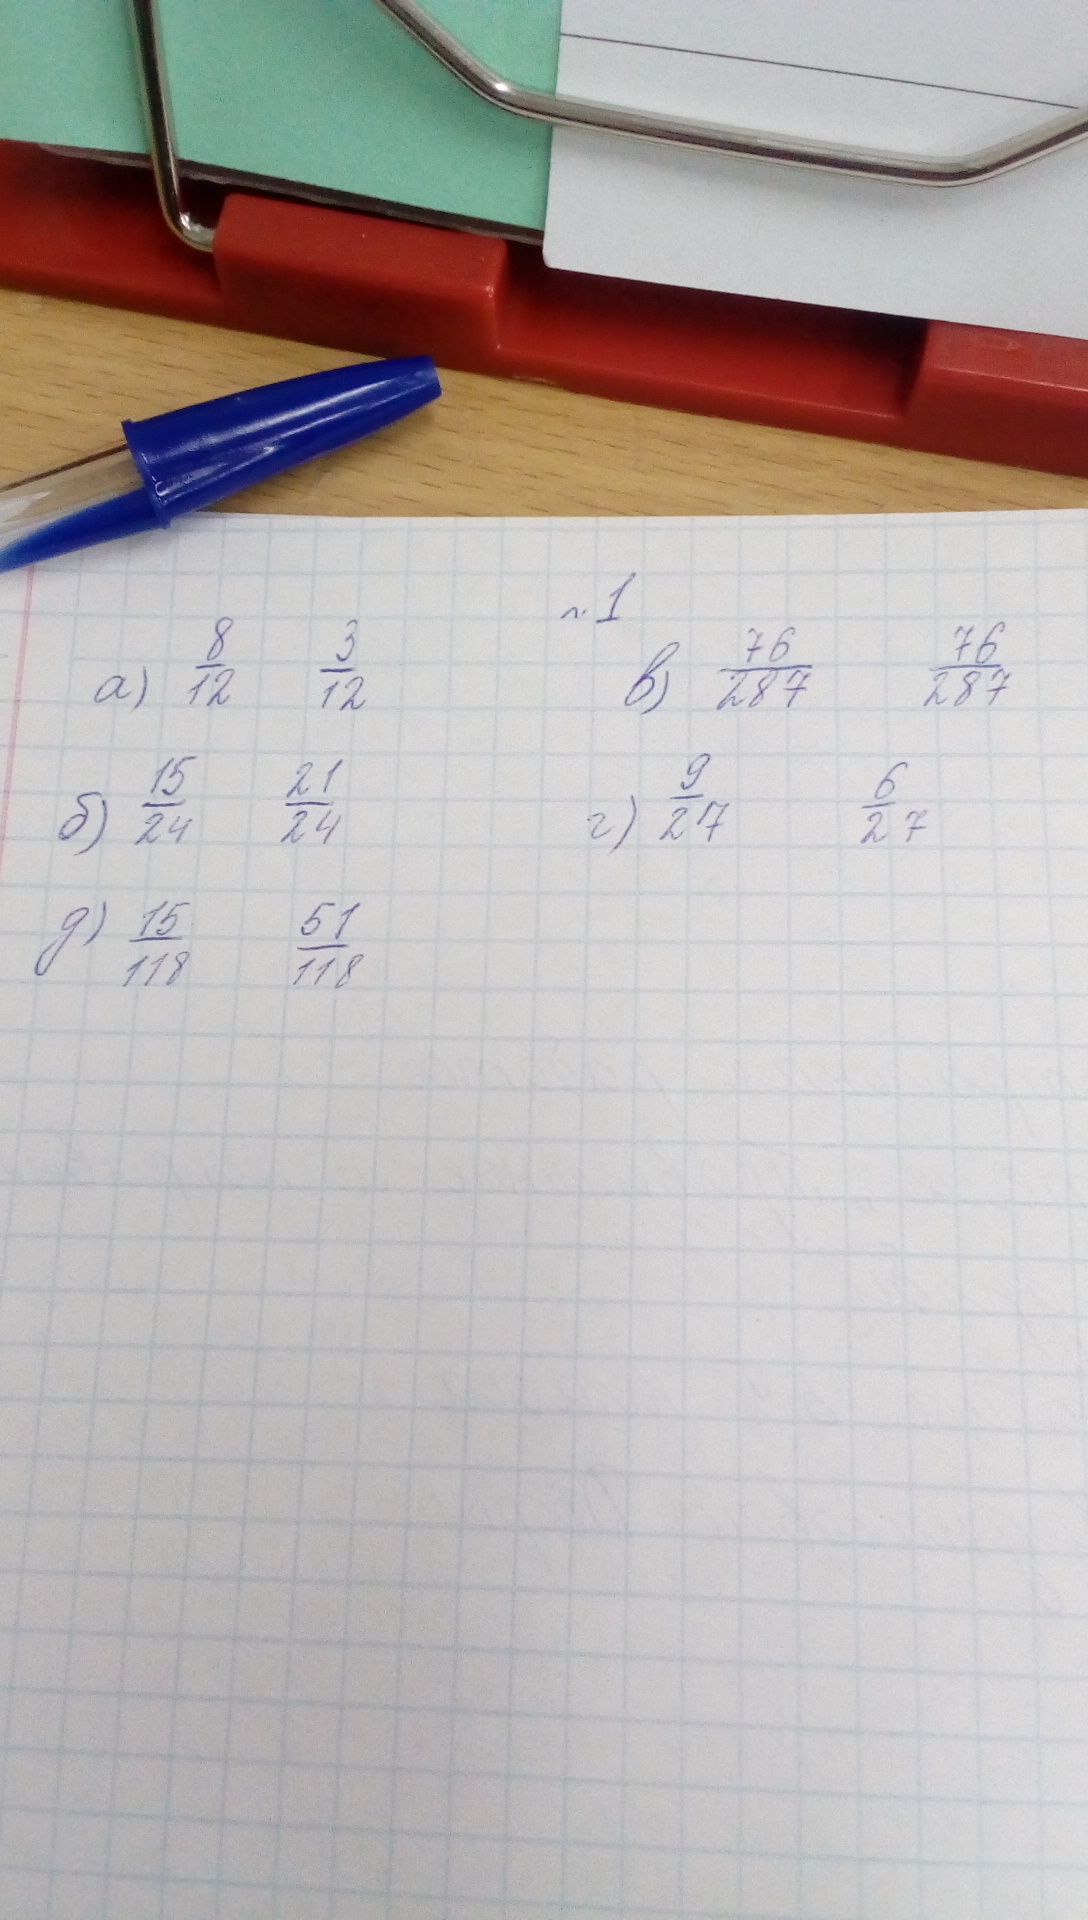 №1
а) 8/12 3/12
в) 76/287 76/287
б) 15/24 21/24
г) 9/27 6/27
д) 15/118 51/118